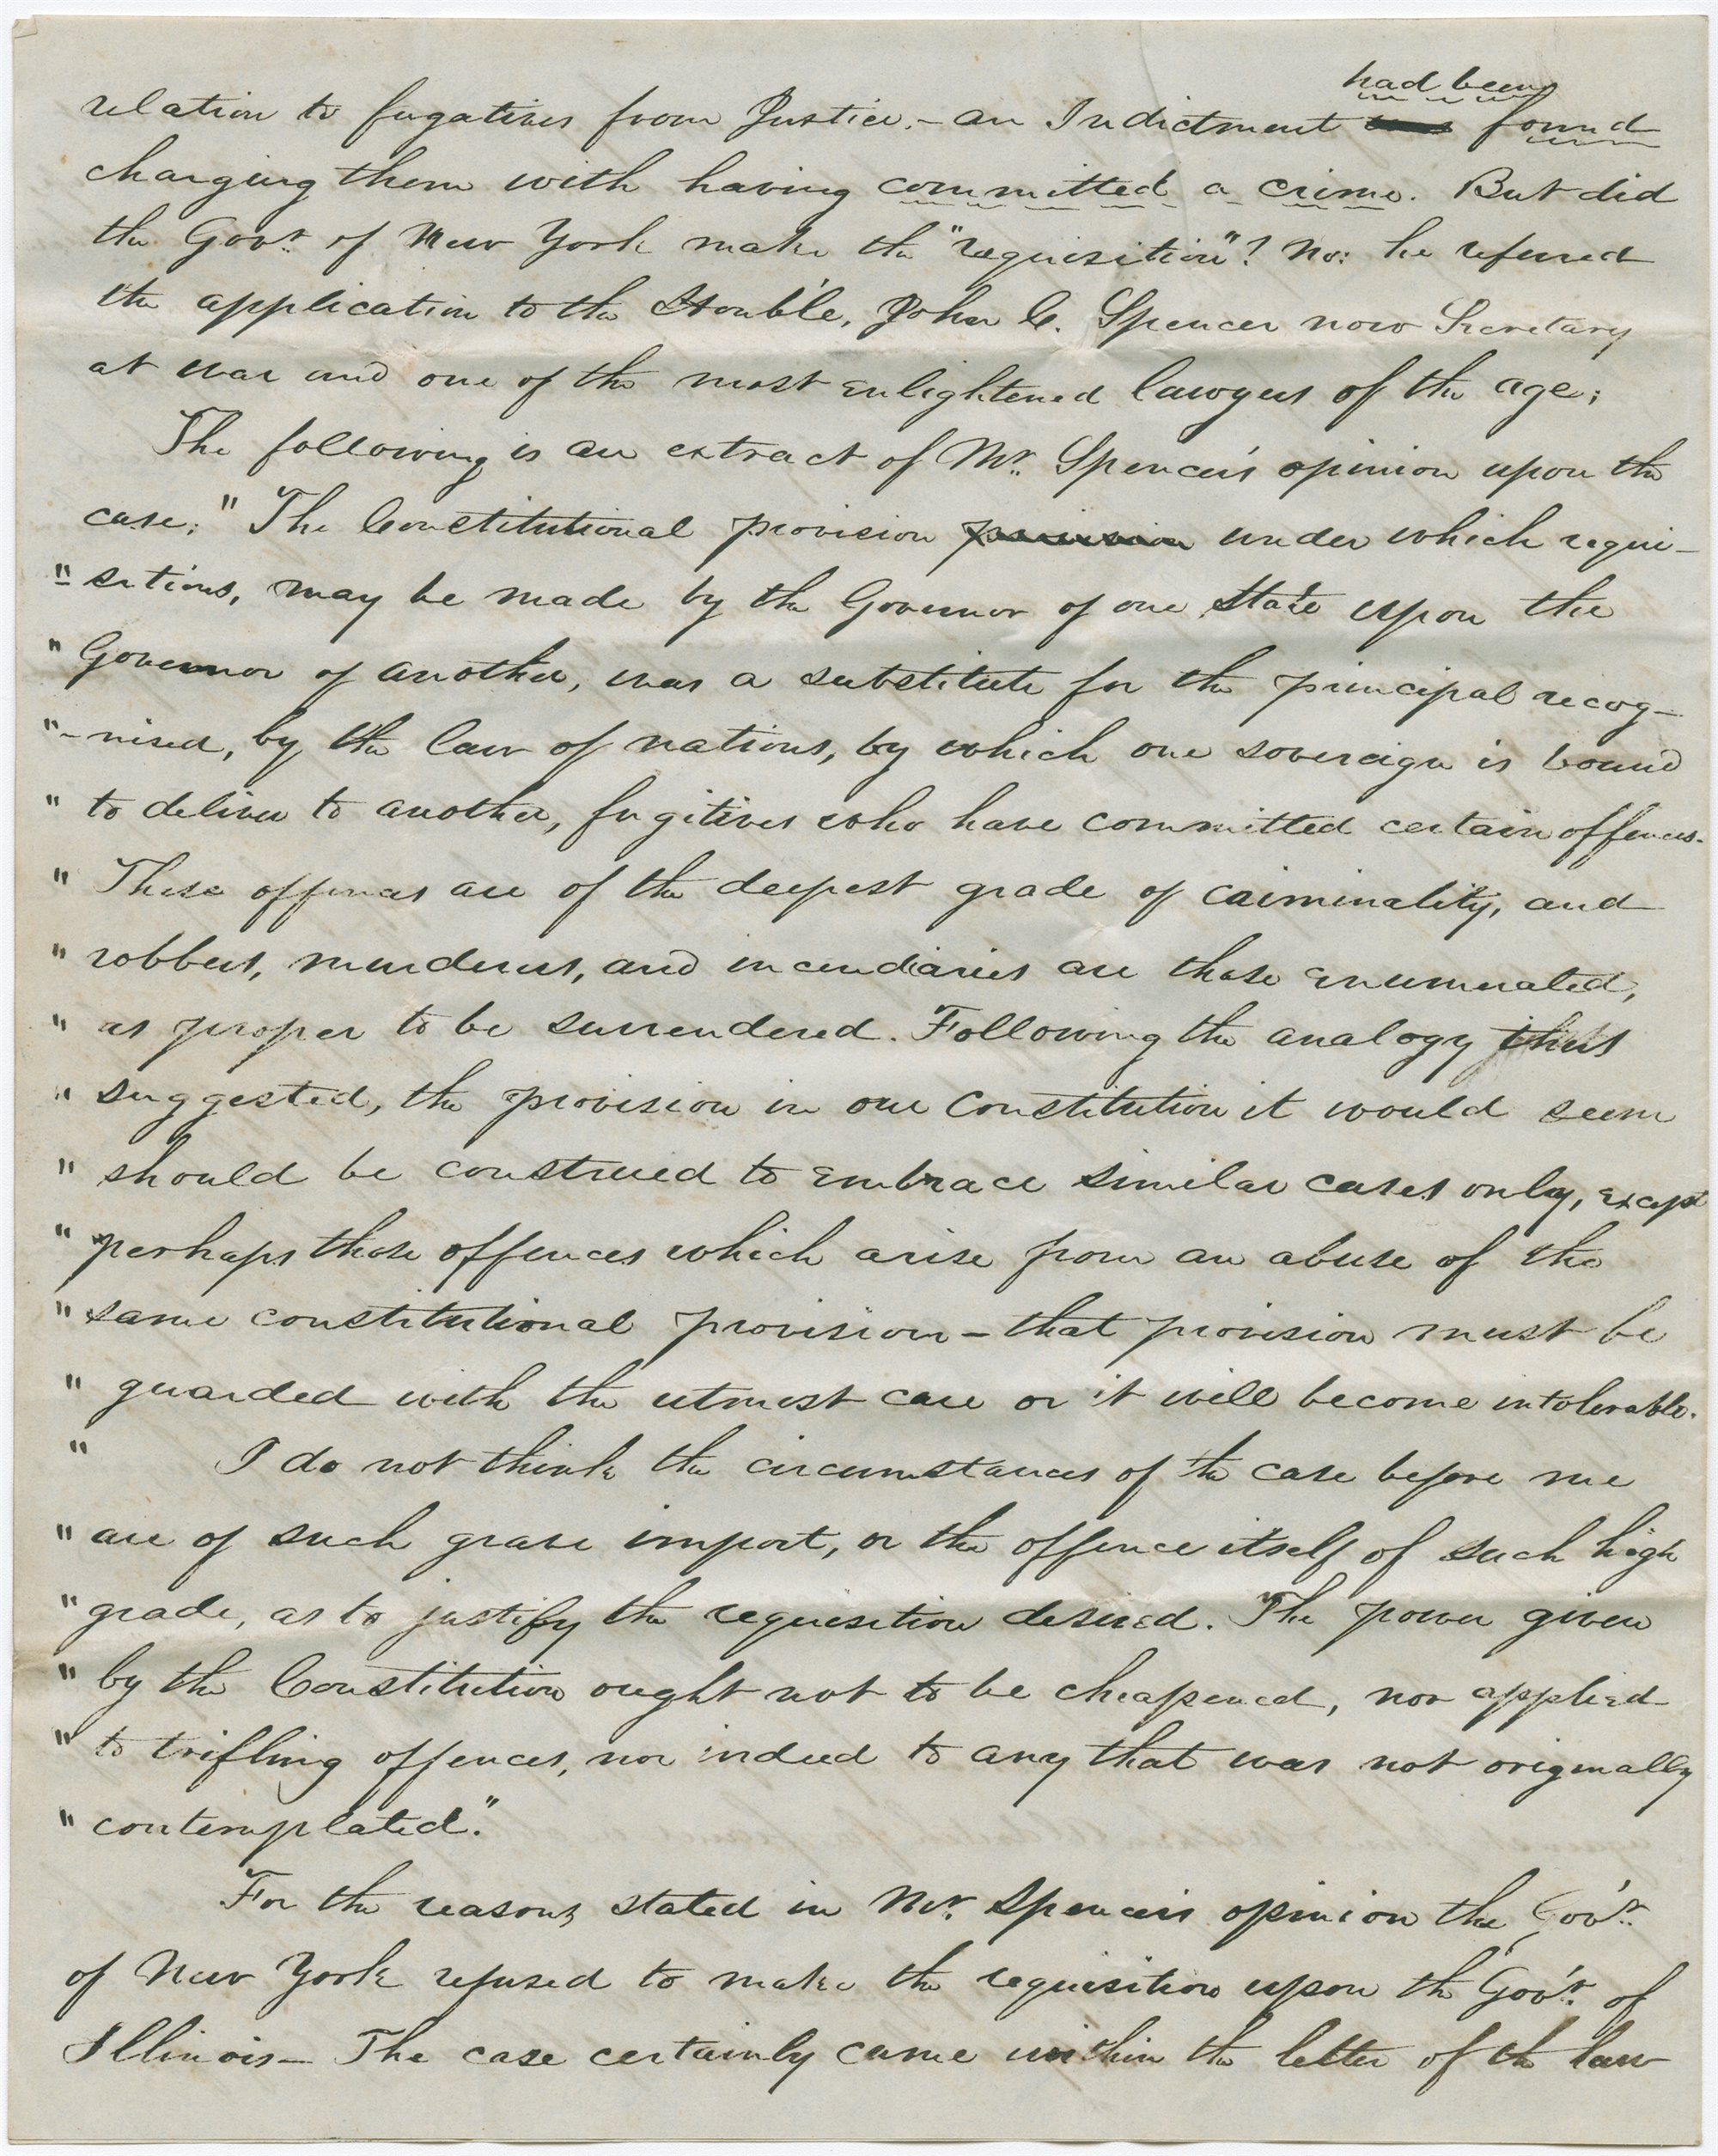 had been
relation to fugatives from Justice.– an Indictment was found
charging them with having committed a crime. But did
the Govr. of New York make the "requisition"? No: he referred
the application to the Honble, John C. Spencer now Secretary
at war and one of the most enlightened lawyers of the age;
The following is an extract of Mr. Spencer's opinion upon the
case; "The Constitutional provision provision under which requi-
" sitions, may be made by the Governor of one State upon the
" Governor of another, was a substitute for the principal recog-
"-nised, by the law of nations, by which one sovereign is bound
" to deliver to another, fugitives who have committed certain offences.
" These offences are of the deepest grade of criminality, and
" robbers, murderers, and incendiaries are those enumerated,
" as proper to be surrendered. Following the analogy thus
" suggested, the provision in our Constitution it would seem
" should be construed to embrace similar cases only, except
" perhaps those offences which arise from an abuse of the
" same constitutional provision – that provision must be
" guarded with the utmost care or it will become intolerable.
" I do not think the circumstances of the case before me
" are of such grave import, or the offence itself of such high
" grade, as to justify the requisition desired. The power given
" by the Constitution ought not to be cheapened, nor applied
" to trifling offences, nor indeed to any that was not originally
" contemplated."
For the reasons stated in Mr. Spencers opinion the Gov'r.
of New York refused to make the requisition upon the Gov'r. of
Illinois – The case certainly came within the letter of the law